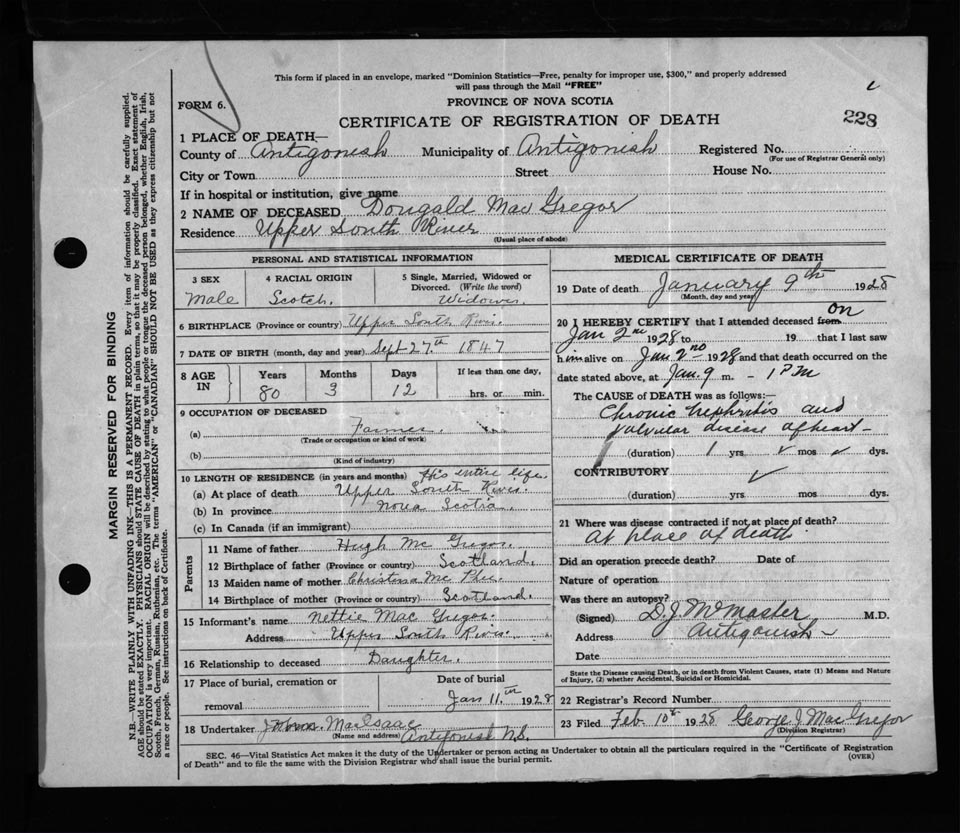 This form if placed in an envelope, marked "Dominion Statistics—Free, penalty for improper use, $300," and properly addressed
will pass through the Mail "FREE"
FORM 6.
PROVINCE OF NOVA SCOTIA
CERTIFICATE OF REGISTRATION OF DEATH
228
1 PLACE OF DEATH—
County of Antigonish Municipality of Antigonish Registered No.
(For use of Registrar General only)
City or Town Street House No.
If in hospital or institution, give name
2 NAME OF DECEASED Dougald Mac Gregor
Residence Upper South River
(Usual place of abode)
PERSONAL AND STATISTICAL INFORMATION
3 SEX 4 RACIAL ORIGIN 5 Single, Married, Widowed or
Divorced. (Write the word)
Male Scotch. Widower
6 BIRTHPLACE (Province or country) Upper South River
7 DATE OF BIRTH (month, day and year) Sept 27th 1847
8 AGE IN Years Months Days If less than one day,
80 3 12 hrs. or min.
9 OCCUPATION OF DECEASED
(a) Farmer
(Trade or occupation or kind of work)
(b)
(Kind of industry)
10 LENGTH OF RESIDENCE (in years and months) His entire life
(a) At place of death Upper South River
(b) In province Nova Scotia.
(c) In Canada (if an immigrant)
Parents
11 Name of father Hugh Mc Gregor
12 Birthplace of father (Province or country) Scotland.
13 Maiden name of mother Christina Mc Phee
14 Birthplace of mother (Province or country) Scotland.
15 Informant's name Nettie Mac Gregor
Address Upper South River
16 Relationship to deceased Daughter.
17 Place of burial, cremation or Date of burial
removal Jan 11th 1928
18 Undertaker John MacIsaac
(Name and address) Antigonish N.S.
MEDICAL CERTIFICATE OF DEATH
19 Date of death January 9th 1928
(Month, day and year)
on
20 I HEREBY CERTIFY that I attended deceased from
Jan 2nd 1928 to 19 that I last saw
him alive on Jan 2nd 1928 and that death occurred on the
date stated above, at Jan. 9 m. - 1 PM
The CAUSE of DEATH was as follows:
Chronic Nephritis and
valvular disease of heart -
(duration) 1 yrs. mos dys.
CONTRIBUTORY
(duration) yrs mos dys.
21 Where was disease contracted if not at place of death?
At place of death
Did an operation precede death? Date of
Nature of operation
Was there an autopsy?
(Signed) D.J. McMaster M.D.
Address Antigonish
Date
State the Disease causing Death, or in death from Violent Causes, state (1) Means and Nature
of Injury, (2) whether Accidental, Suicidal or Homicidal.
22 Registrar's Record Number
23 Filed Feb 10th 1928 George J. Mac Gregor
(Division Registrar)
SEC. 46—Vital Statistics Act makes it the duty of the Undertaker or person acting as Undertaker to obtain all the particulars required in the "Certificate of Registration
of Death" and to file the same with the Division Registrar who shall issue the burial permit. (OVER)
MARGIN RESERVED FOR BINDING
N.B.—WRITE PLAINLY WITH UNFADING INK—THIS IS A PERMANENT RECORD. Every item of information should be carefully supplied.
AGE should be stated EXACTLY. PHYSICIANS should STATE CAUSE OF DEATH in plain terms, so that it may be properly classified. Exact statement of
OCCUPATION is very important. RACIAL ORIGIN will be described by stating to what people or tongue the deceased person belonged, whether English, Irish,
Scotch, French, German, Russian, Ruthenian, etc. The terms "AMERICAN" or "CANADIAN" SHOULD NOT BE USED as they express citizenship but not
a race or people. See instructions on back of Certificate.